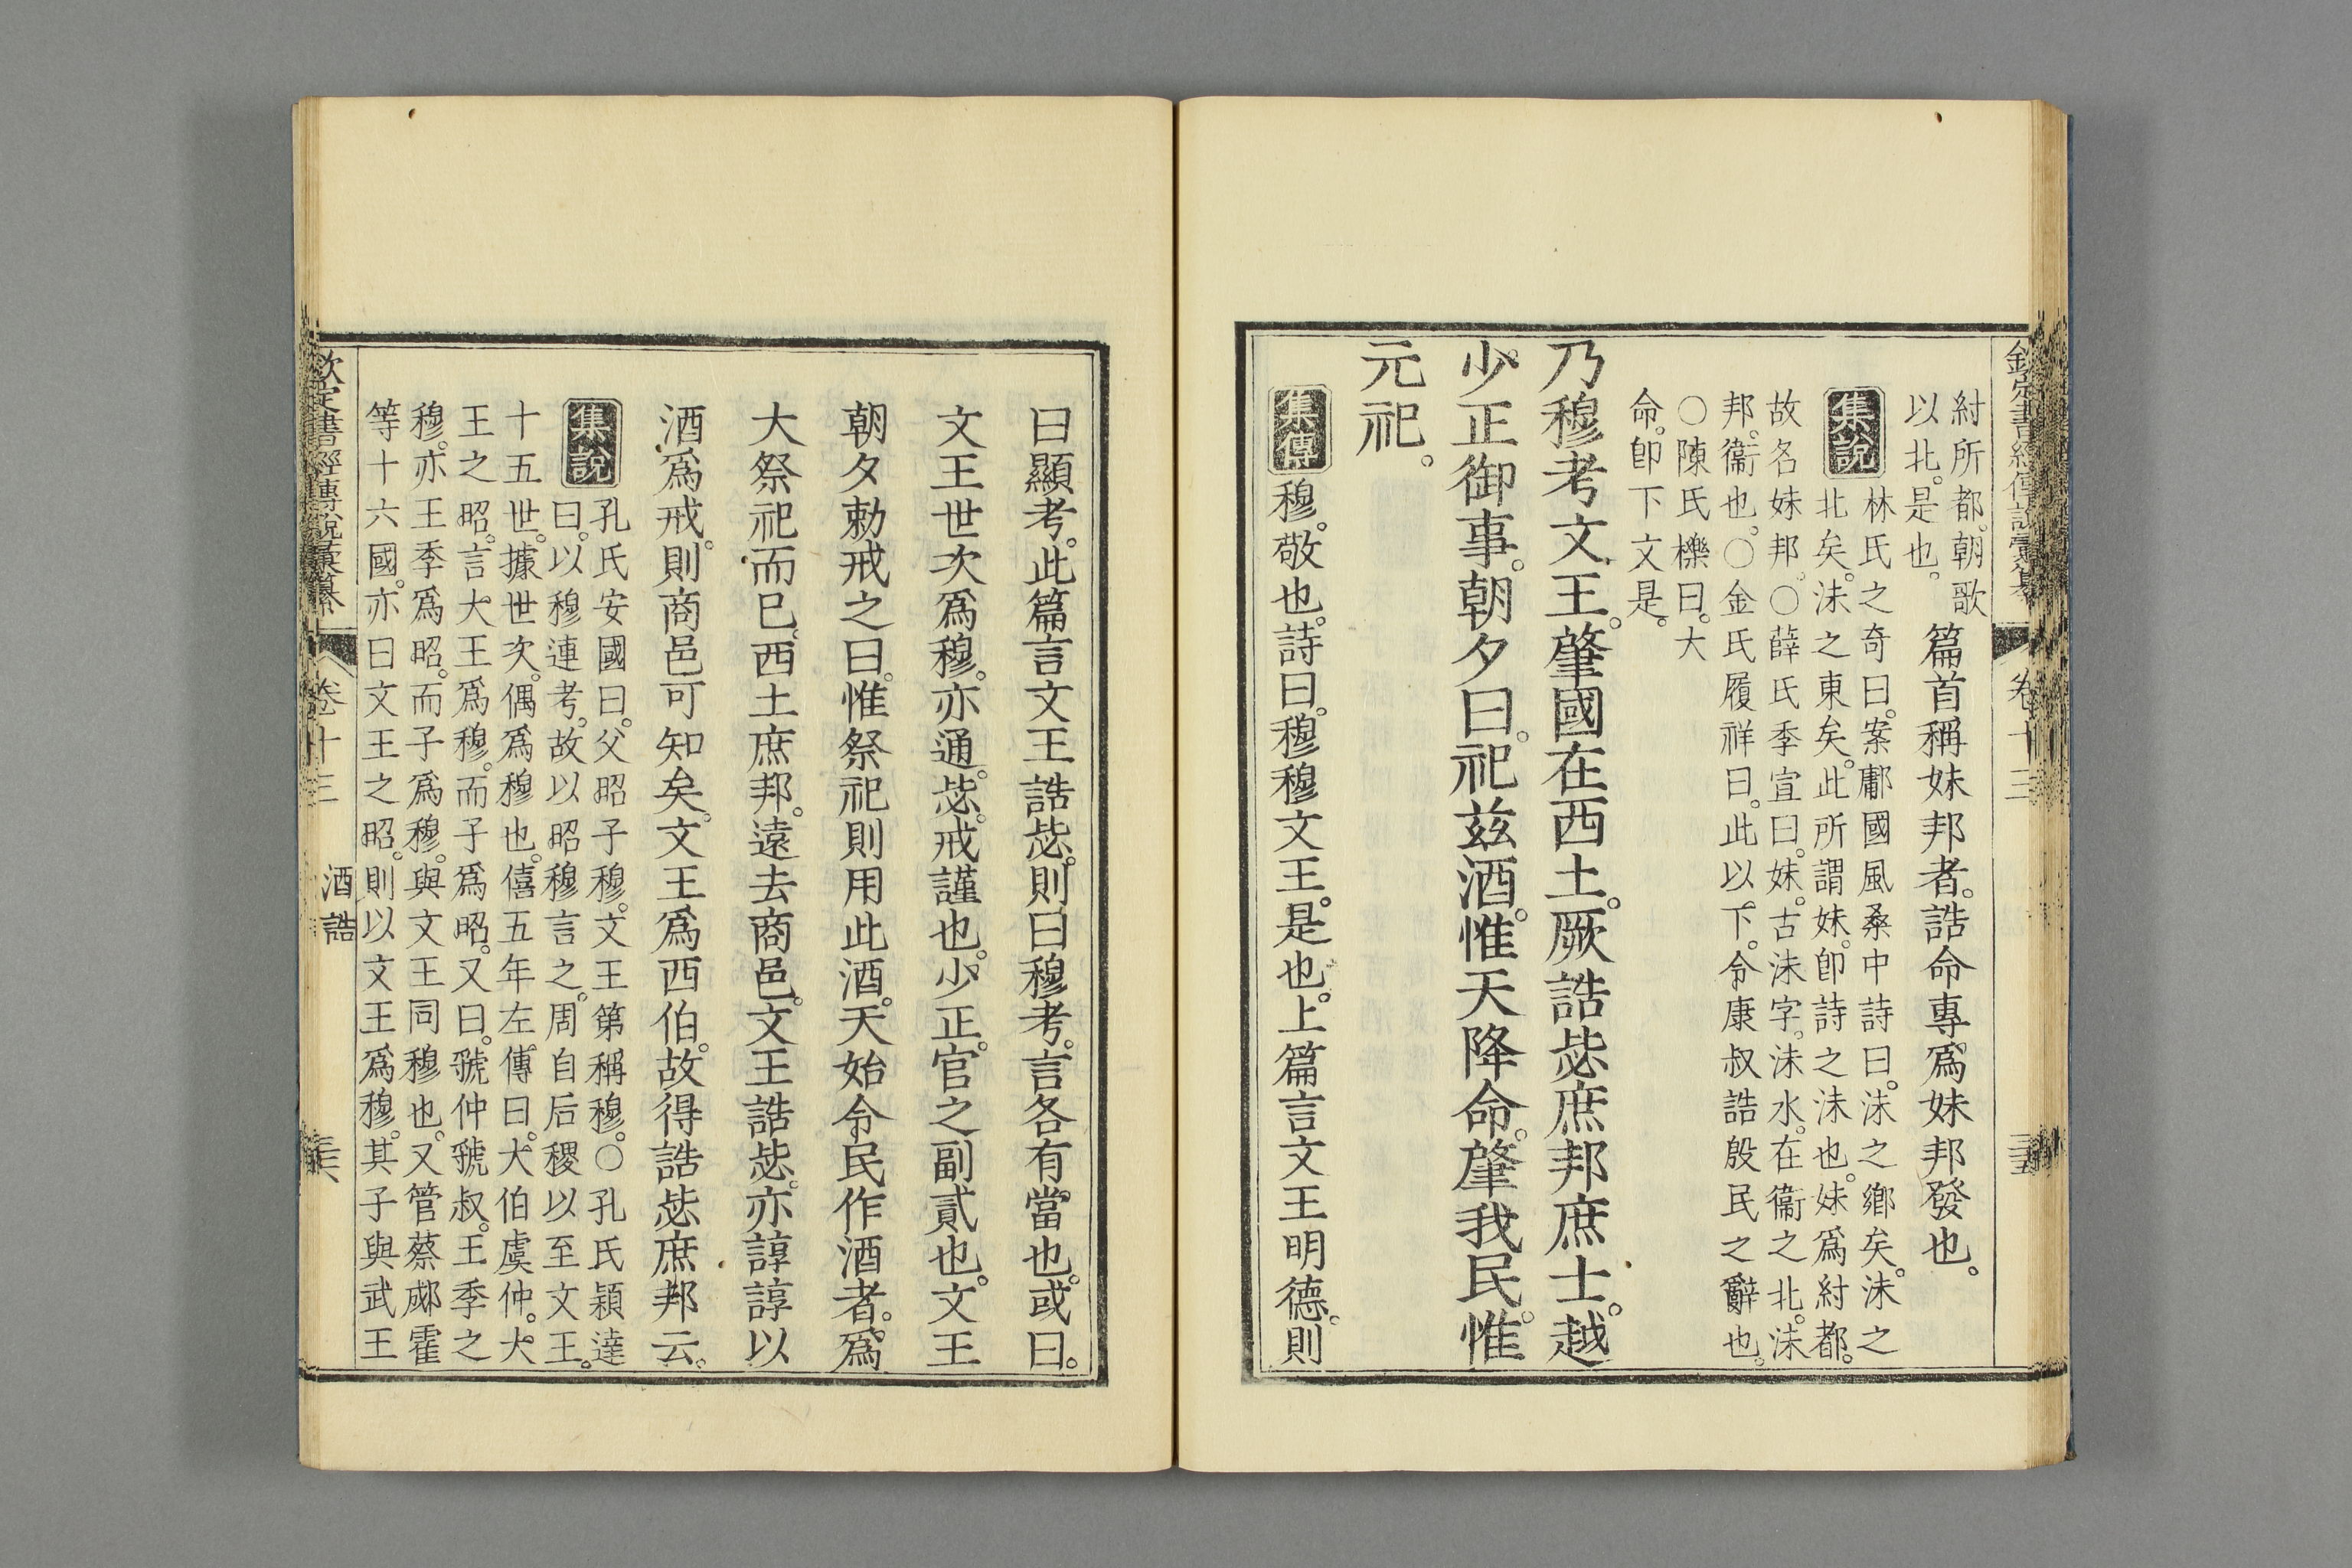 欽定書經傳說彙纂
卷十三
紂所都朝歌
以北。是也。
篇首稱妹邦者。誥命專爲妹邦發也。
集說
林氏之奇曰。案鄘國風桑中詩曰。沬之鄉矣。沬之
北矣。沬之東矣。此所謂妹。卽詩之沬也。妹爲紂都。
故名妹邦。○薛氏季宣曰。妹。古沬字。沬水。在衞之北。沬
邦。衞也。○金氏履祥曰。此以下。令康叔誥殷民之辭也。
○陳氏櫟曰。大
命。卽下文是。
乃穆考文王。肇國在西土。厥誥毖庶邦庶士。越
少正御事。朝夕曰。祀茲酒。惟天降命。肇我民。惟
元祀。
集傳
穆。敬也。詩曰。穆穆文王。是也。上篇言文王明德。則
曰顯考。此篇言文王誥毖。則曰穆考。言各有當也。或曰。
文王世次爲穆。亦通。毖。戒謹也。少正。官之副貳也。文王
朝夕勅戒之曰。惟祭祀則用此酒。天始令民作酒者。爲
大祭祀而已。西土庶邦。遠去商邑。文王誥毖。亦諄諄以
酒爲戒。則商邑可知矣。文王爲西伯。故得誥毖庶邦云。
集說
孔氏安國曰。父昭子穆。文王第稱穆。○孔氏穎達
曰。以穆連考。故以昭穆言之。周自后稷以至文王。
十五世。據世次。偶爲穆也。僖五年左傳曰。大伯虞仲。大
王之昭。言大王爲穆。而子爲昭。又曰。虢仲虢叔。王季之
穆。亦王季爲昭。而子爲穆。與文王同穆也。又管蔡郕霍
等十六國。亦曰文王之昭。則以文王爲穆。其子與武王
欽定書經傳說彙纂
卷十三
酒誥